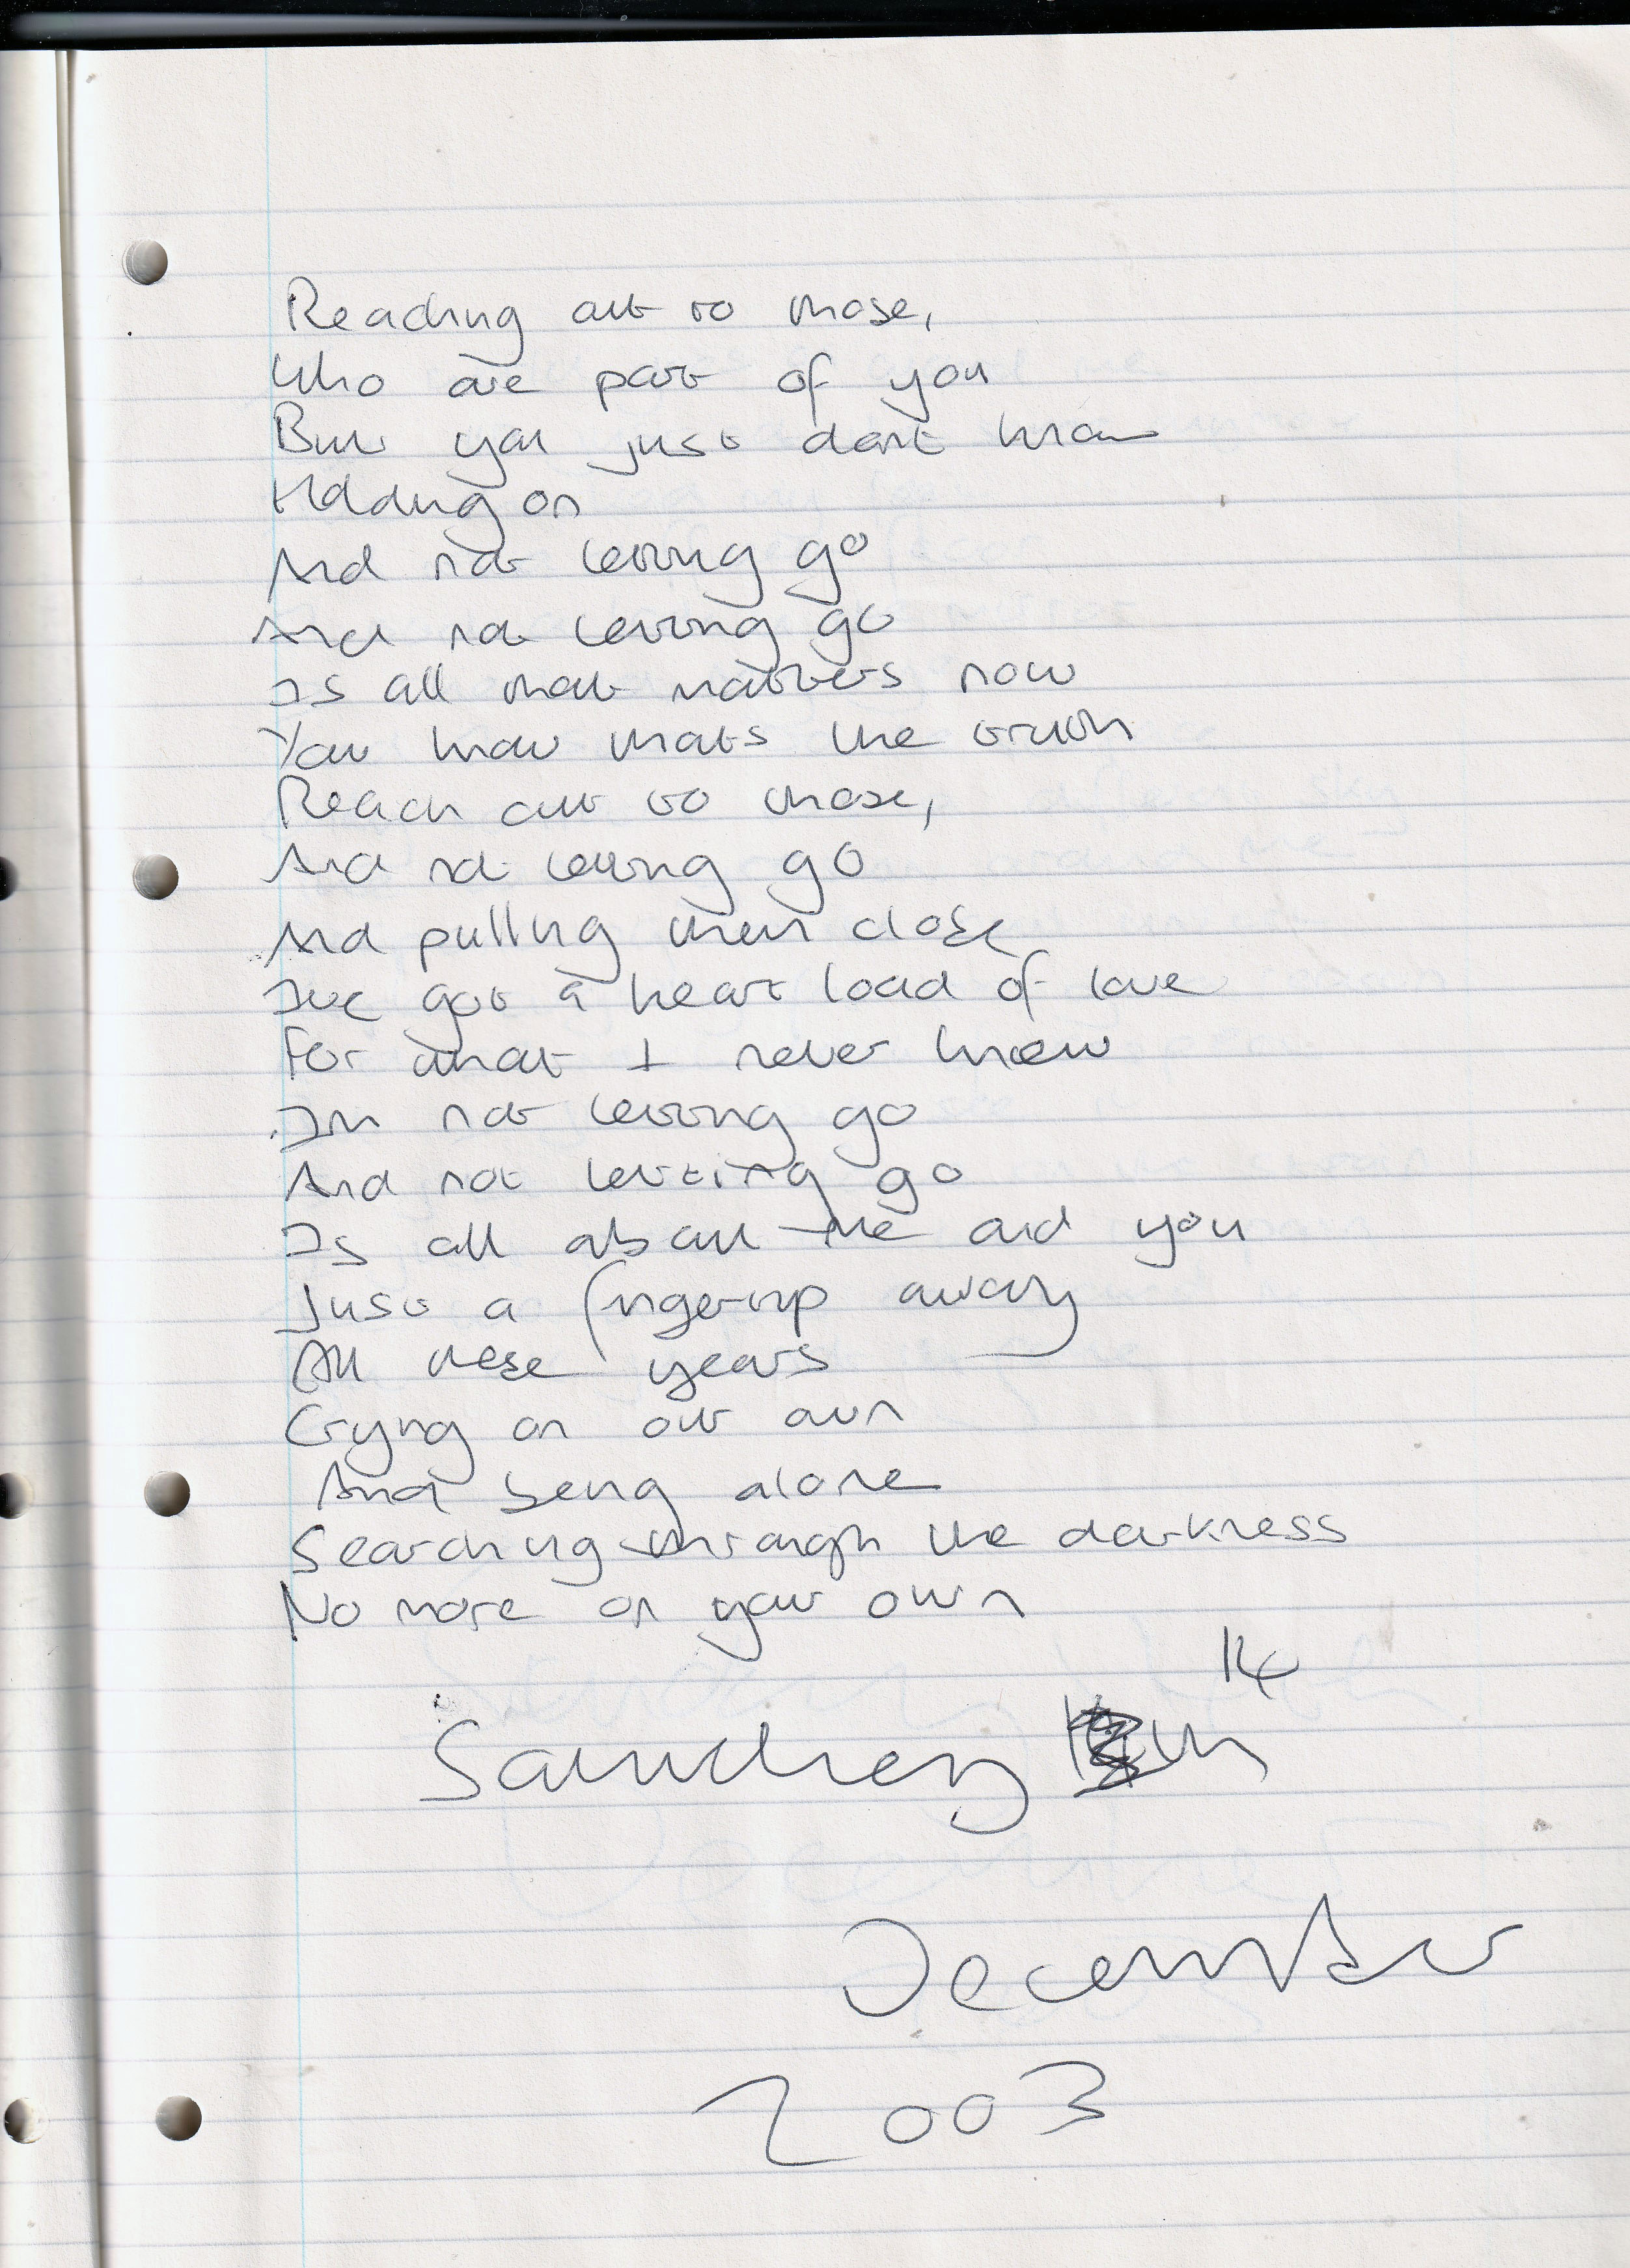 Reaching out to those,
Who are part of you
But you just dont know
Holding on
And not letting go
And not letting go
Is all that matters now
You know thats the truth
Reach out to those,
And not letting go
And pulling them close
Ive got a heart load of love
For what I never knew
Im not letting go
And not letting go
Is all about me and you
Just a fingertip away
All these years
Crying on our own
And being alone
Searching through the darkness
No more on your own
14
December
2003